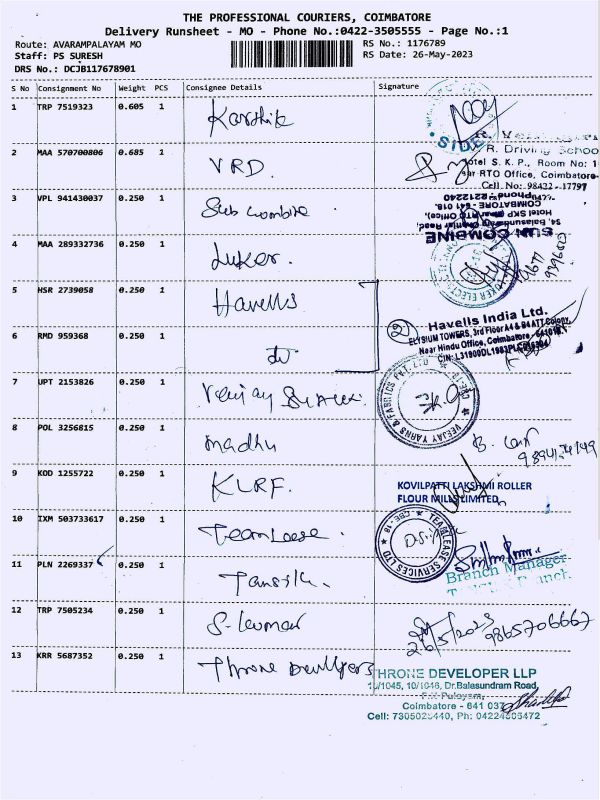 THE PROFESSIONAL COURIERS, COIMBATORE
Delivery Runsheet - MO - Phone No.:0422-3505555 - Page No.:1
Route: AVARAMPALAYAM MO
RS No.: 1176789
Staff: PS SURESH
RS Date: 26-May-2023
DRS No.: DCJB117678901
S No Consignment No Weight PCS Consignee Details Signature
1 TRP 7519323 0.605 1 Karthik
2 MAA 570700806 0.685 1 VRD.
R. Driving Schoo
Hotel S. K. P., Room No: 1
RTO Office, Coimbatore
Cell. No: 98432 - 17797
3 VPL 941430037 0.250 1 Sun Combine
SUN COMBINE
54, Balasundaram Road,
Hotel SKP (RTO Office),
COIMBATORE - 641 018.
Phone: 2212240
4 MAA 289332736 0.250 1 Luker.
5 HSR 2739058 0.250 1 Havells
Havells India Ltd.
ELYSIUM TOWERS, 3rd Floor A4 & B4 ATT Colony,
Near Hindu Office, Coimbatore - 641018.
6 RMD 959368 0.250 1
(2)
7 UPT 2153826 0.250 1
VEEJAY YARNS & FABRICS PVT. LTD
8 POL 3256815 0.250 1 madhu
9 KOD 1255722 0.250 1 KLRF.
KOVILPATTI LAKSHMI ROLLER
FLOUR MILLS LIMITED
10 IXM 503733617 0.250 1 Teamlease
TEAMLEASE SERVICES LTD
CBE-18
11 PLN 2269337 0.250 1
Branch Manager
12 TRP 7505234 0.250 1 S. Kumar
26/5/2023 9865706667
13 KRR 5687352 0.250 1 Throne Developers
THRONE DEVELOPER LLP
10/1045, 10/1046, Dr.Balesundram Road,
Coimbatore - 641 037